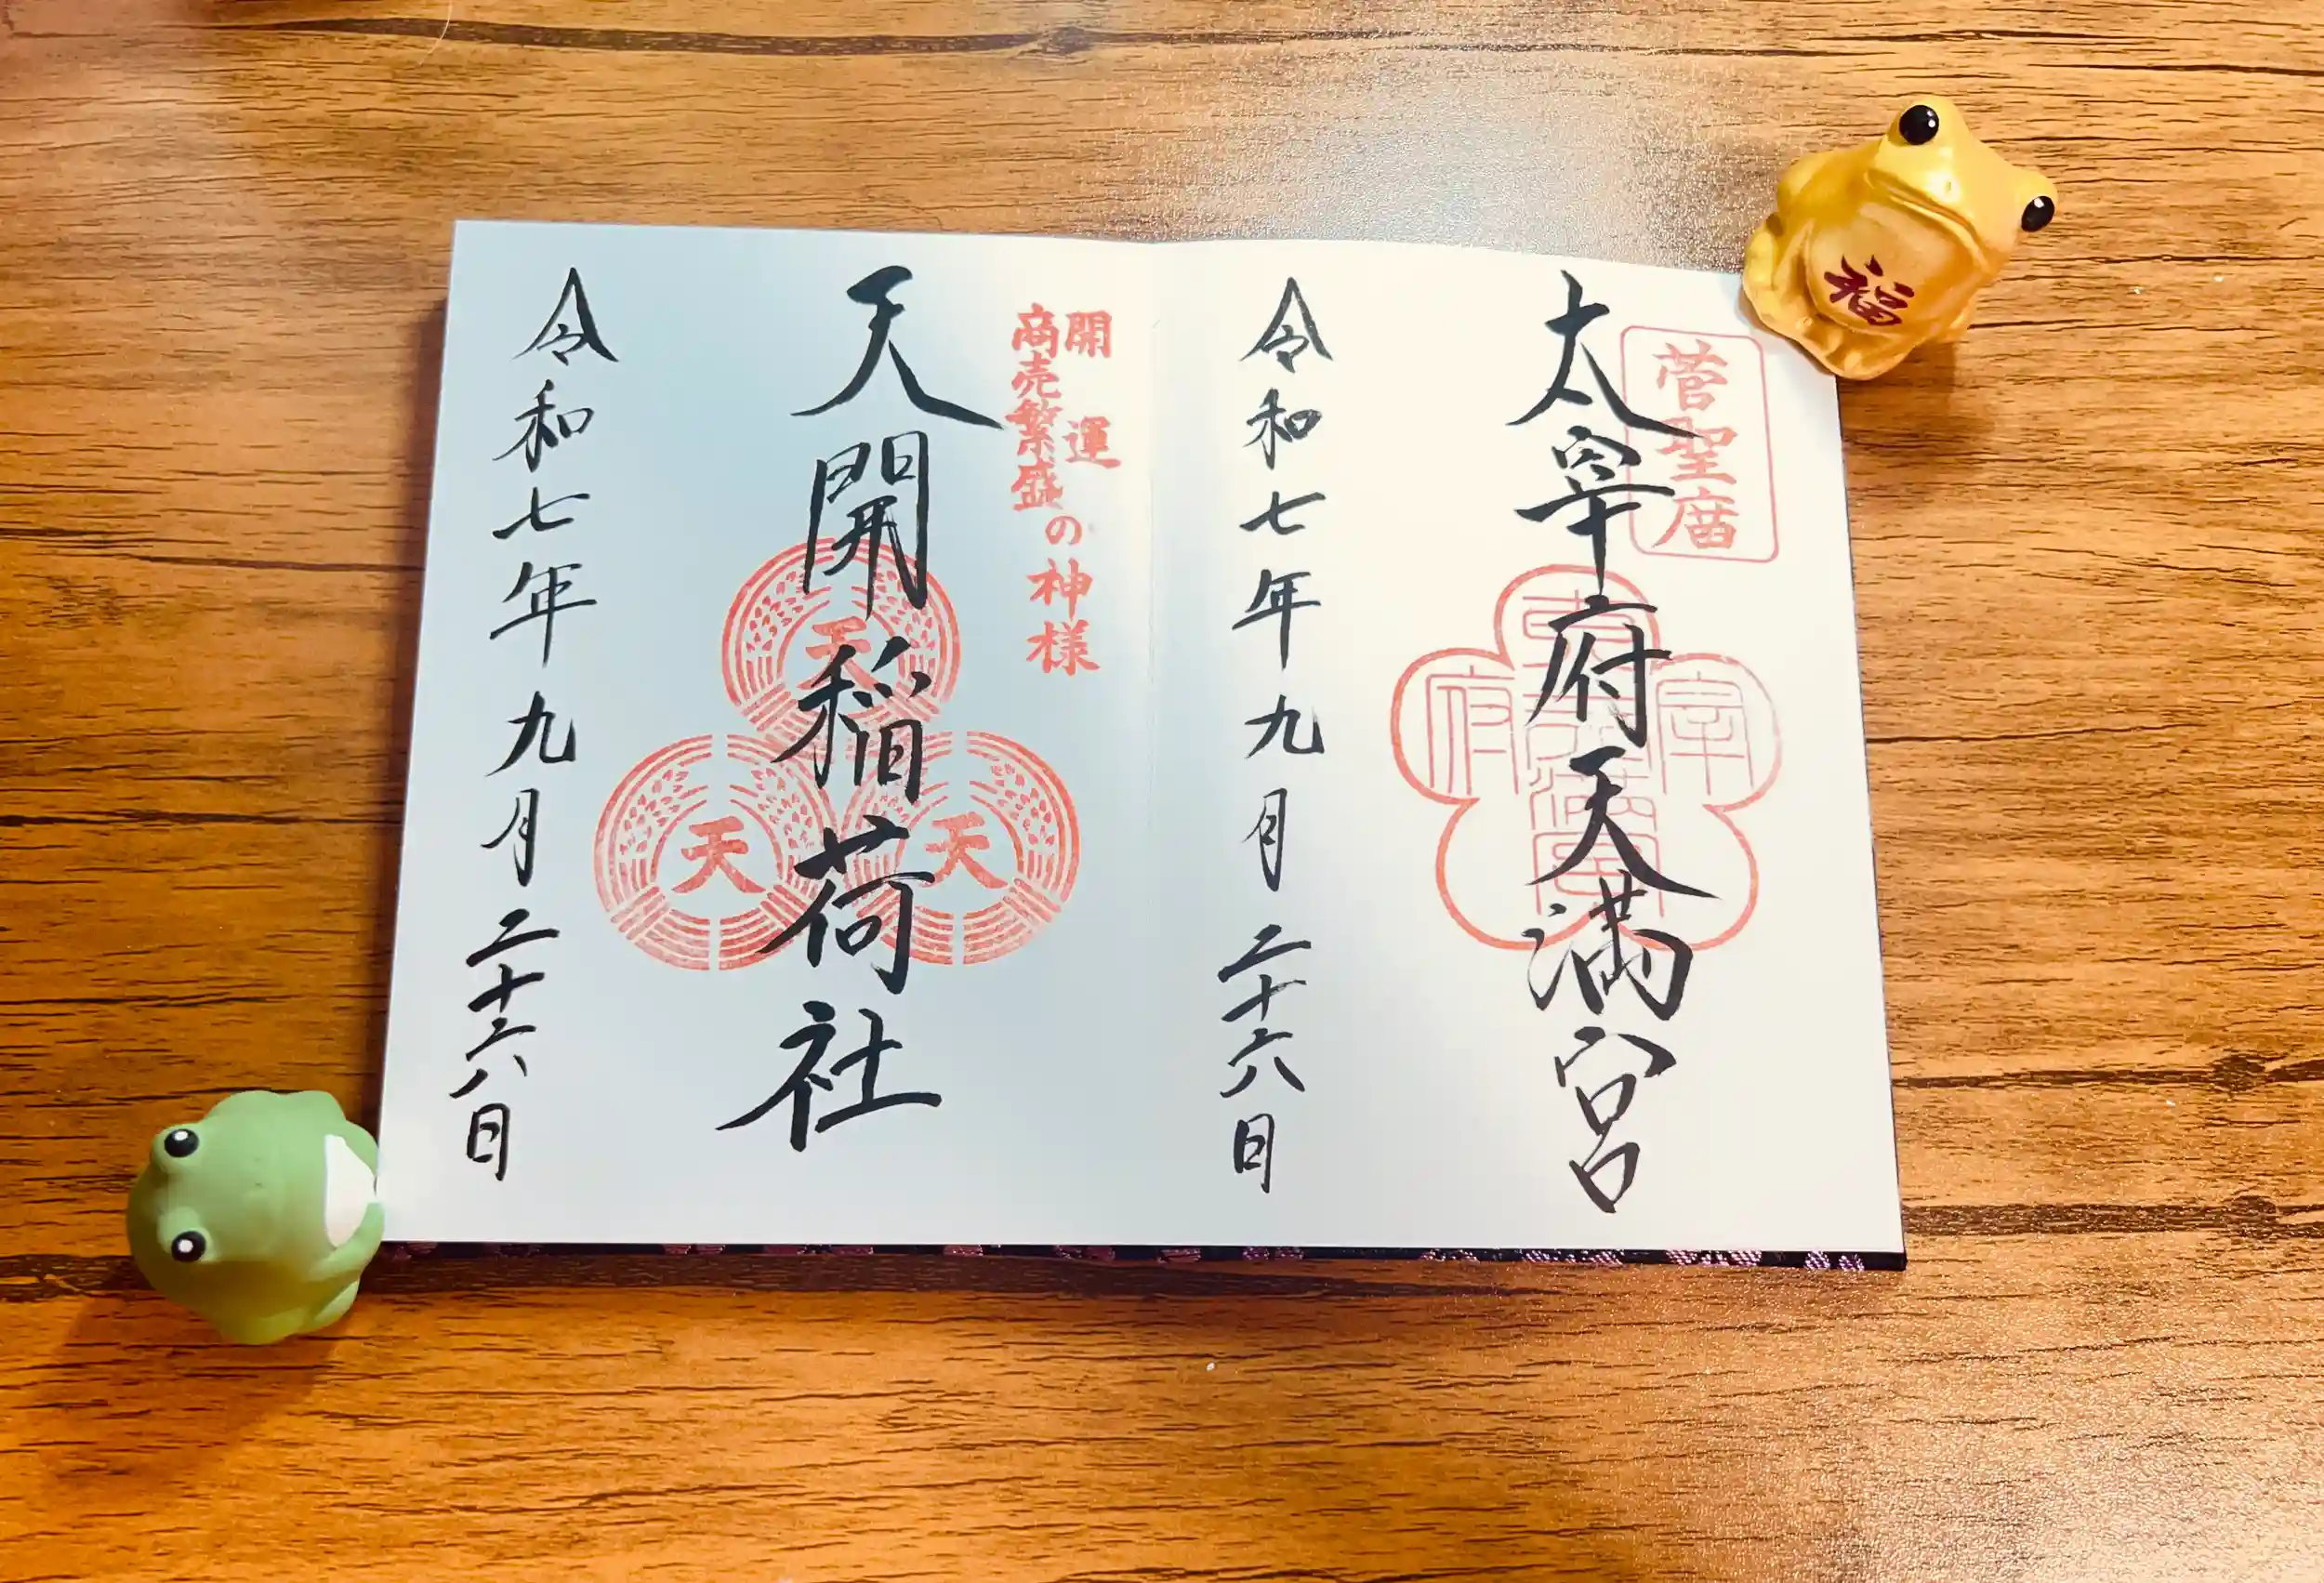 菅聖廟
太宰府天満宮
宰
府
令和七年九月二十六日
開運
商売繁盛
の神様
天開稲荷社
天
天
天
令和七年九月二十六日
福